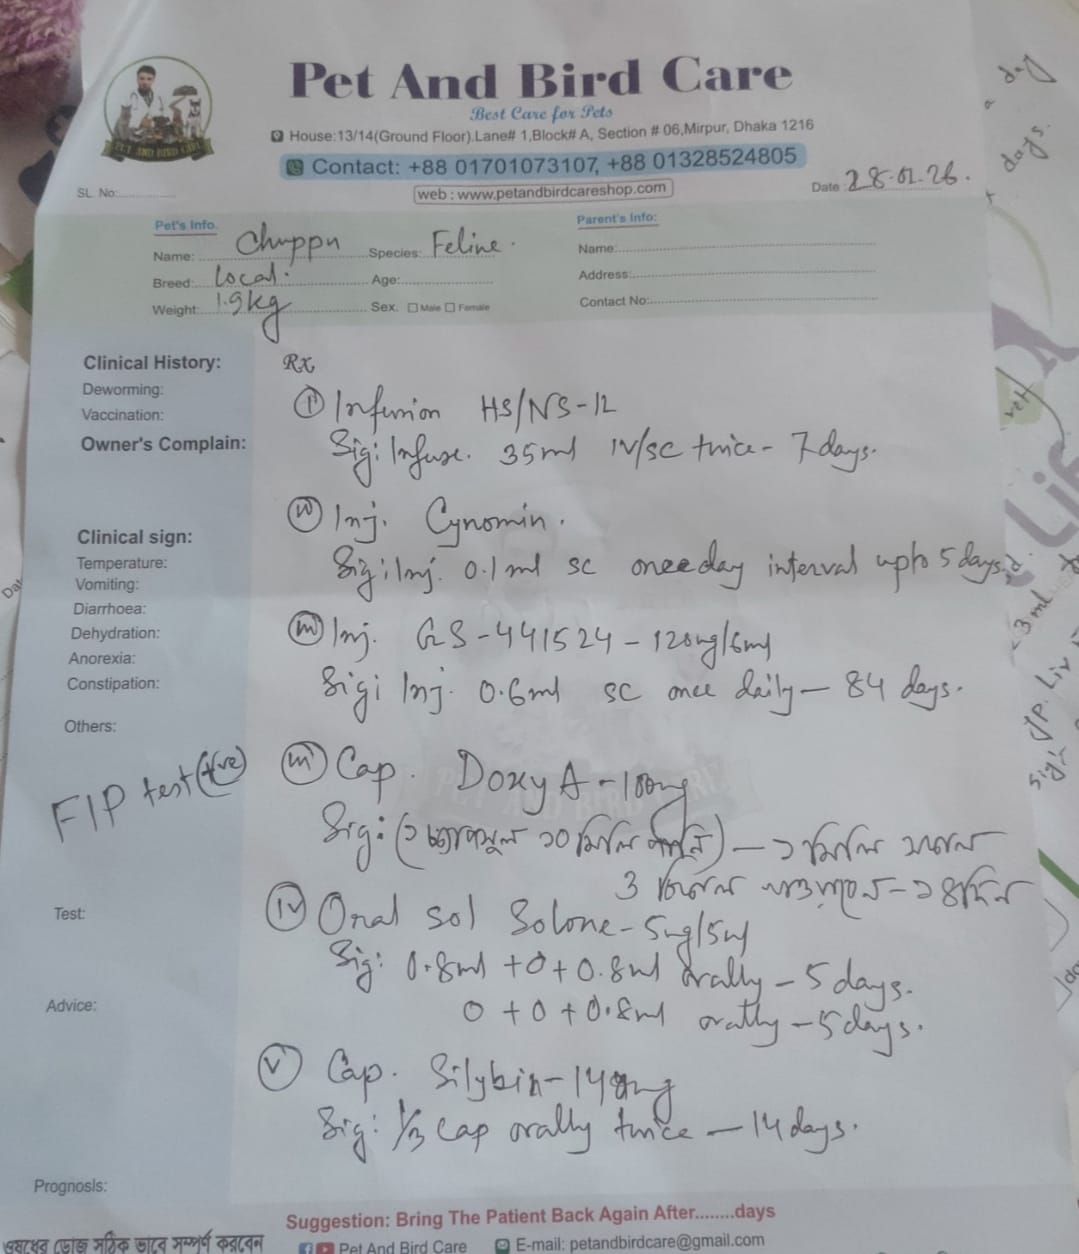 Pet And Bird Care
Best Care for Pets
House:13/14(Ground Floor).Lane# 1,Block# A, Section # 06,Mirpur, Dhaka 1216
Contact: +88 01701073107, +88 01328524805
web : www.petandbirdcareshop.com
SL. No:
Date 28.01.26.
PET AND BIRD CARE
Pet's Info.
Name: Chuppu Species: Feline.
Breed: Local. Age:
Weight: 1.9kg Sex. Male Female
Parent's Info:
Name:
Address:
Contact No:
Clinical History:
Deworming:
Vaccination:
Owner's Complain:
Clinical sign:
Temperature:
Vomiting:
Diarrhoea:
Dehydration:
Anorexia:
Constipation:
Others:
FIP test (+ve)
Test:
Advice:
Prognosis:
Rx
(i) Infusion HS/NS-12
Sig: Infuse. 35ml IV/SC twice - 7 days.
Inj. Cynomin.
Sig: Inj. 0.1ml SC one day interval upto 5 days.
(iii) Inj. GS-441524 - 120mg/6ml
Sig: Inj. 0.6ml SC once daily - 84 days.
Cap. Doxy A - 100mg
Sig: (১ ক্যাপসুল ১০ মিলি পানি) — ১ মিলি
(iv) Oral sol Solone - 5mg/5ml
Sig: 0.8ml + 0 + 0.8ml orally - 5 days.
0 + 0 + 0.8ml orally - 5 days.
(v) Cap. Silybin - 140mg
Sig: 1/3 cap orally twice - 14 days.
Suggestion: Bring The Patient Back Again After........days
ঔষধের ডোজ সঠিক ভাবে সম্পূর্ণ করবেন
Pet And Bird Care
E-mail: petandbirdcare@gmail.com
day
days.
vet
Lif
3ml
Liv
Sig: